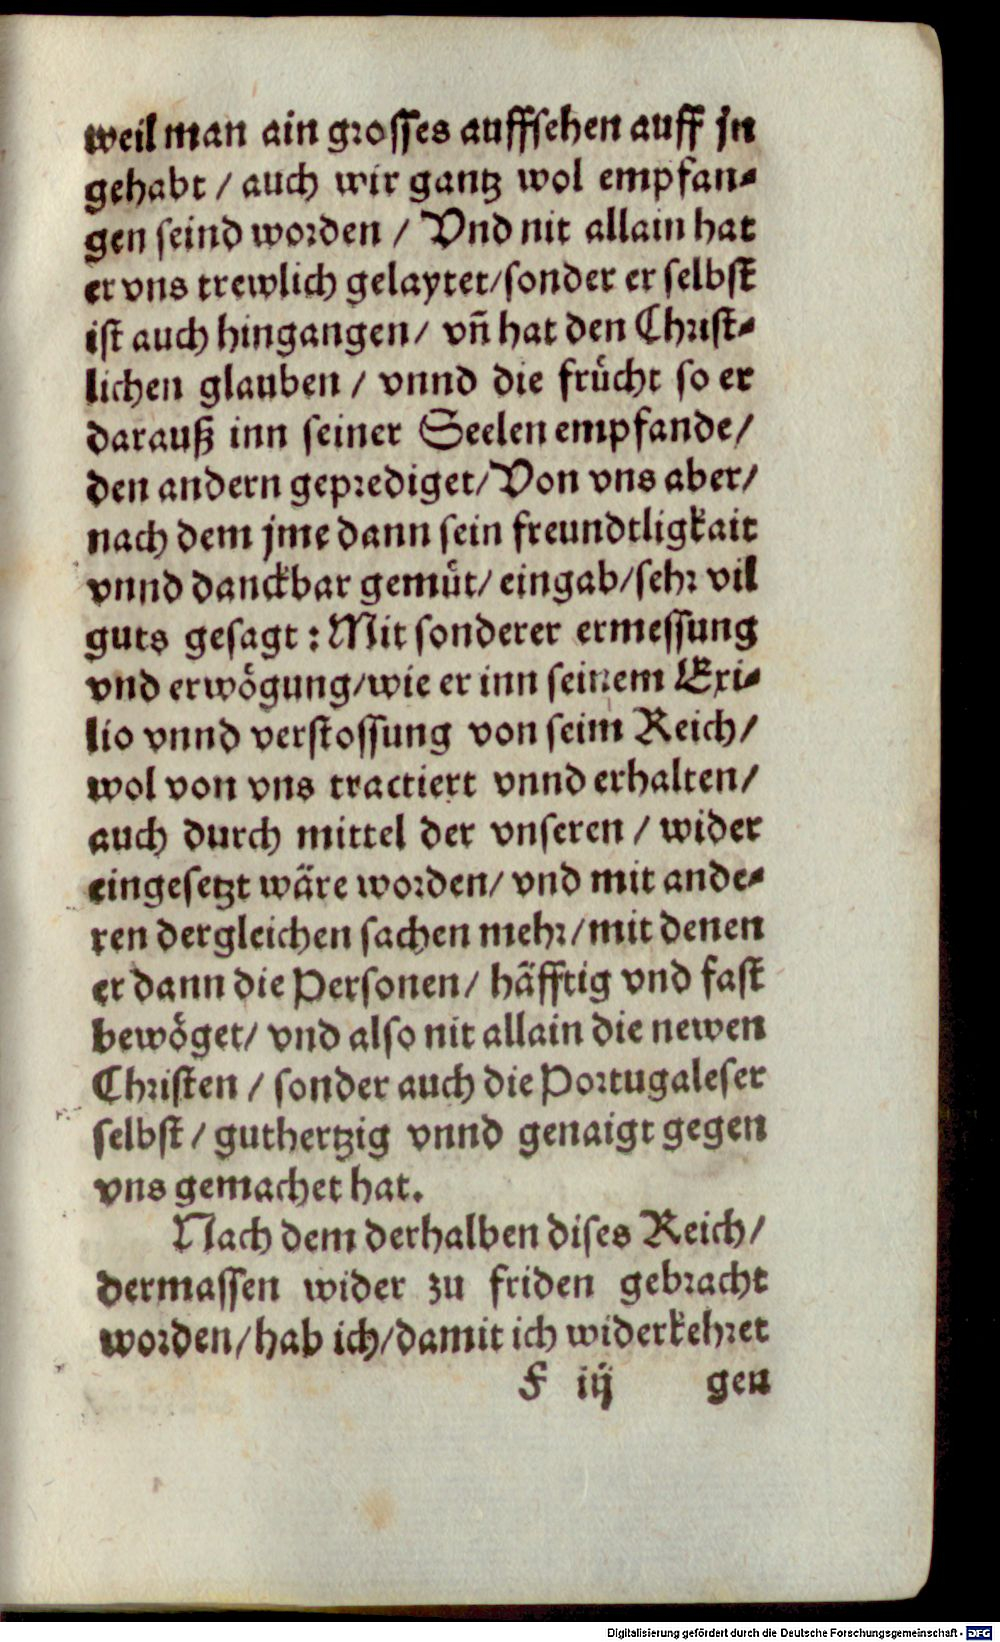 weil man ain grosses auffsehen auff jn
gehabt / auch wir gantz wol empfan-
gen seind worden / Vnd nit allain hat
er vns trewlich gelaytet/sonder er selbst
ist auch hingangen/ vñ hat den Christ-
lichen glauben / vnnd die frücht so er
darauß inn seiner Seelen empfande/
den andern geprediget/Von vns aber/
nach dem jme dann sein freundtligkait
vnnd danckbar gemüt/ eingab/sehr vil
guts gesagt : Mit sonderer ermessung
vnd erwögung/wie er inn seinem Exi-
lio vnnd verstossung von seim Reich/
wol von vns tractiert vnnd erhalten/
auch durch mittel der vnseren / wider
eingesetzt wäre worden/ vnd mit ande-
ren dergleichen sachen mehr/mit denen
er dann die Personen/ häfftig vnd fast
bewöget/ vnd also nit allain die newen
Christen / sonder auch die Portugaleser
selbst / guthertzig vnnd genaigt gegen
vns gemachet hat.
Nach dem derhalben dises Reich/
dermassen wider zu friden gebracht
worden/hab ich/damit ich widerkehret
F iij gen
Digitalisierung gefördert durch die Deutsche Forschungsgemeinschaft - DFG